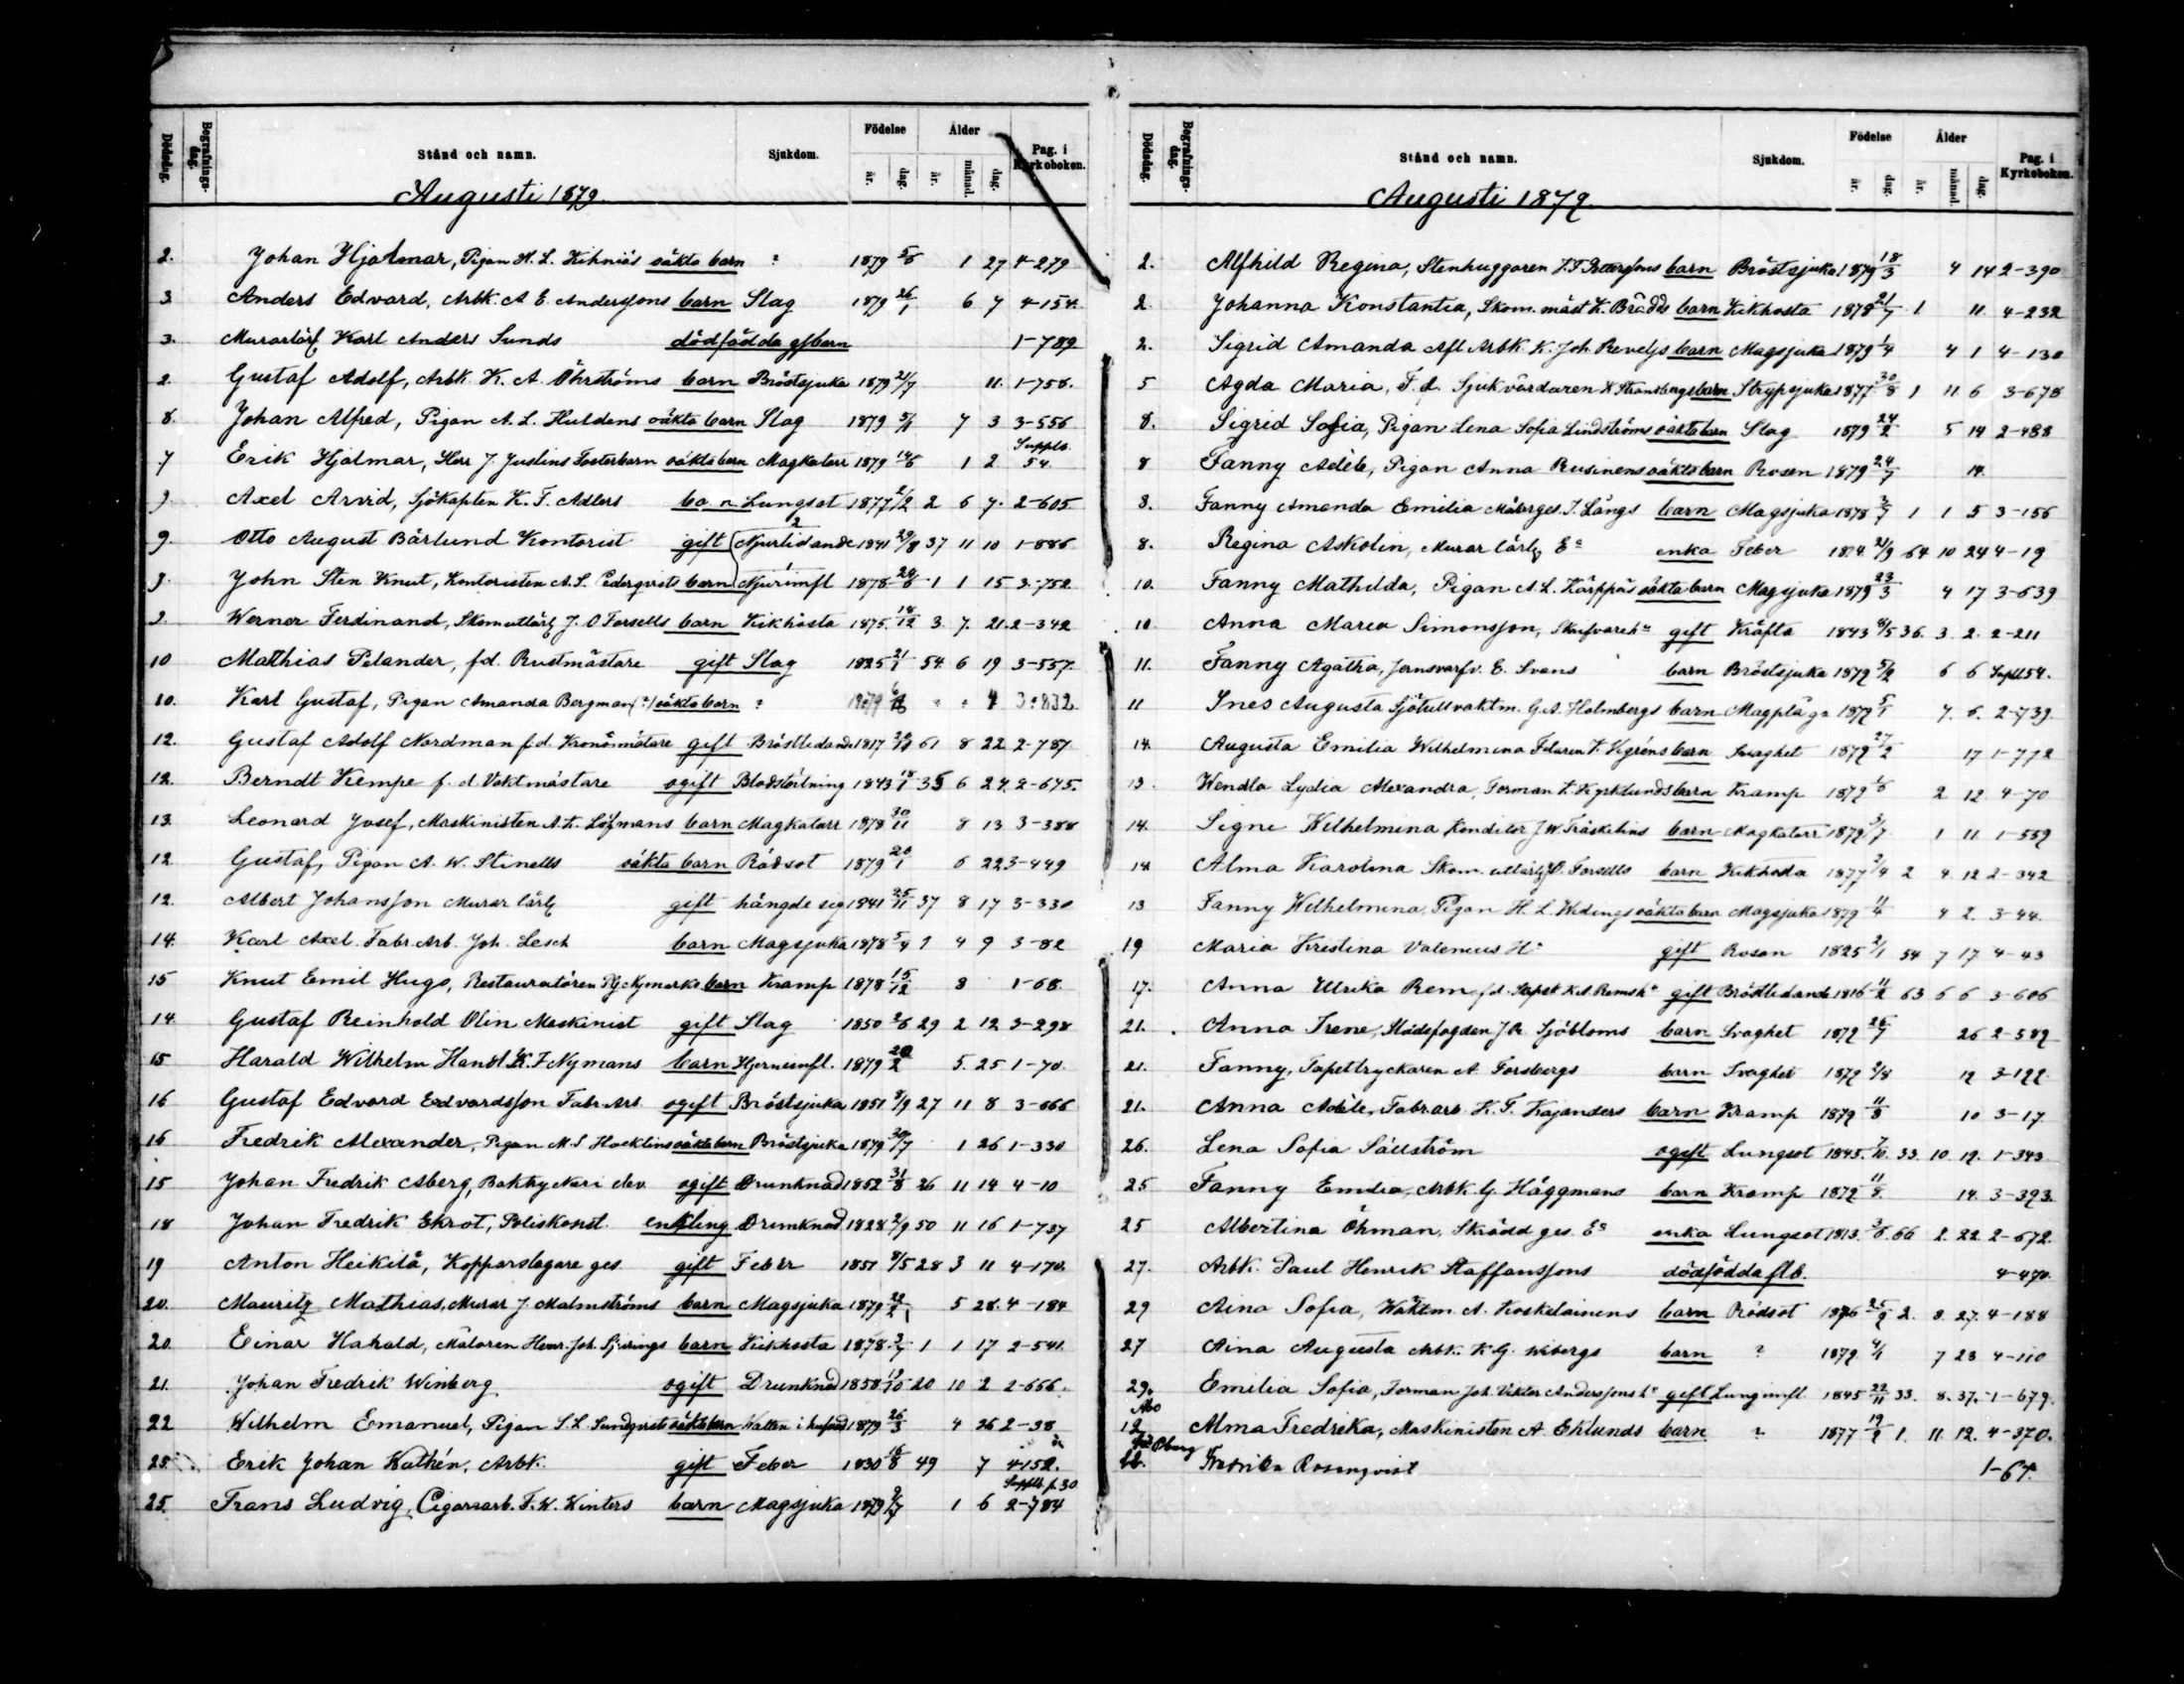 Dödsdag. Begrafnings-dag. Stånd och namn. Sjukdom. Födelse år. dag. Ålder år. månad. dag. Pag. i Kyrkoboken.
Augusti 1879.
2. Johan Hjalmar, Pigan H. L. Kihniäs oäkta barn ? 1879 5/6 1 27 4-279
3 Anders Edvard, Arbk. A E. Anderssons barn Slag 1879 26/1 6 7 4-154.
3. Murarlärl Karl Anders Sunds dödfödda gsbarn 1-789
2. Gustaf Adolf, Arbk K. A. Öhrströms barn Bröstsjuka 1879 21/7 11. 1-758.
8. Johan Alfred, Pigan A. L. Huldens oäkta barn Slag 1879 5/1 7 3 3-556
7 Erik Hjalmar, Herr J. Juslins Fosterbarn oäkta barn Magkatarr 1879 14/6 1 2 Supplb. 54.
9. Axel Arvid, Sjökapten K. F. Adlers barn Lungsot 1877 2/2 2 6 7. 2-605
9. Otto August Bärlund Kontorist gift Njurlidande 1841 29/8 37 11 10 1-886
9. John Sten Knut, Kontoristen A. S. Cederqvists barn Njurimfl 1878 24/6 1 1 15 3-752
9. Werner Ferdinand, Skomutlärl J. O Forsells barn Kikhosta 1875. 18/12 3. 7. 21. 2-342
10 Mathias Pelander, fd. Rustmästare gift Slag 1825 21/1 54 6 19 3-557.
10. Karl Gustaf, Pigan Amanda Bergman (?) oäkta barn ? 1879 6/8 " " 4 3-832
12. Gustaf Adolf Nordman f.d. Kronomätare gift Bröstlidande 1817 20/12 61 8 22 2-787.
12. Berndt Kempe f. d. Vaktmästare ogift Blodstörtning 1843 18/1 35 6 24. 2-675.
13. Leonard Josef, Maskinisten A. K. Löfmans barn Magkatarr 1878 30/11 8 13 3-388
12. Gustaf, Pigan A. W. Stinells oäkta barn Rödsot 1879 20/1 6 22 3-449
12. Albert Johansson Murar lärl gift hängde sig 1841 25/11 37 8 17 3-330
14. Karl Axel. Fabr. Arb. Joh. Lesch barn Magsjuka 1878 5/4 1 4 9 3-82
15 Knut Emil Hugo, Restauratören Nymarks barn Kramp 1878 15/12 8 1-68.
14 Gustaf Reinhold Olin Maskinist gift Slag 1850 2/6 29 2 12 3-298
15 Harald Wilhelm Handl. K. F. Nymans barn Hjerneimfl. 1879 20/2 5. 25 1-70.
16 Gustaf Edvard Edvardsson Fabr. Arb. ogift Bröstsjuka 1851 8/9 27 11 8 3-666
16 Fredrik Alexander, Pigan M. S. Hacklins oäkta barn Bröstsjuka 1879 20/7 1 26 1-330
15 Johan Fredrik Åberg, Boktryckeri elev ogift Drunknad 1852 31/8 26 11 14 4-10
18 Johan Fredrik Ekrot, Poliskonst. enkling Drunknad 1828 2/9 50 11 16 1-737
19 Anton Heikilä, Kopparslagare ges. gift Feber 1851 8/5 28 3 11 4-170.
20. Mauritz Mathias, Murar J. Malmströms barn Magsjuka 1879 22/2 5 28. 4-184
20. Einar Harald, Målaren Henr. Joh. barn Kikhosta 1878. 3/7 1 1 17 2-541.
21. Johan Fredrik Winberg ogift Drunknad 1858 19/10 20 10 2 2-666.
22 Wilhelm Emanuel, Pigan S. L. Sundqvists oäkta barn Watten i hufvud 1879 26/3 4 26 2-38
25. Erik Johan Kathén, Arbk. gift Feber 1830 18/8 49 7 4-152.
25. Frans Ludvig, Cigarrarb. F. W. Winters barn Magsjuka 1879 9/7 1 6 Supplb. p. 30 2-784
Dödsdag. Begrafnings-dag. Stånd och namn. Sjukdom. Födelse år. dag. Ålder år. månad. dag. Pag. i Kyrkoboken.
Augusti 1879.
2. Alfhild Regina, Stenhuggaren F. F. Petterssons barn Bröstsjuka 1879 18/3 4 14 2-390
2 Johanna Konstantia, Skom. mäst K. Brädds barn Kikhosta 1878 21/7 1 11. 4-232
2. Sigrid Amanda Afl. Arbk. K. Joh. Revells barn Magsjuka 1879 1/4 4 1 4-130
5 Agda Maria, F. d. Sjukvårdaren K Stransbergs barn Strypsjuka 1877. 30/8 1 11. 6 3-678
8. Sigrid Sofia, Pigan Lena Sofia Lindströms oäkta barn Slag 1879 24/2 5 14 2-488
8 Fanny Adèle, Pigan Anna Rusinens oäkta barn Rosen 1879 24/7 14.
8. Fanny Amanda Emilia Målarges. J. Längs barn Magsjuka 1878 3/7 1 1 5 3-156
8. Regina Askolin, Murar lärlg Ea enka Feber 1814. 21/9 64 10 24 4-19
10. Fanny Mathilda, Pigan A. L. Kärppäs oäkta barn Magsjuka 1879 23/3 4 17 3-639
10. Anna Maria Simonsson, Skarfvareh. gift Kräfta 1843 8/5 36. 3. 2. 2-211
11. Fanny Agatha, Jernsvarfv. E. Svens barn Bröstsjuka 1879 5/2 6 6 Suppl 54.
11 Ines Augusta Sjötullvaktm. G. A. Holmbergs barn Magplåga 1879 5/1 7. 6. 2-739.
14. Augusta Emilia Wilhelmina Filaren K. Vigréns barn Svaghet 1879 27/2 17 1-772
13. Wendla Lydia Alexandra, Forman K. Kyrklunds barn Kramp 1879 1/6 2 12 4-70
14. Signe Wilhelmina Konditor J. W. Träskelins barn Magkatarr 1879 3/7 1 11 1-559
14 Alma Karolina Skom. utlärl J. O. Forsells barn Kikhosta 1877 2/4 2 4. 12 2-342
13 Fanny Wilhelmina, Pigan H. L. Widings oäkta barn Magsjuka 1879 11/4 4 2. 3-44.
19 Maria Kristina Valenius Ha gift Rosen 1825 2/1 54 7 17 4-43
17. Anna Ulrika Rem f.d. Rems ha gift Bröstlidande 1816 11/2 63 6 6 3-606
21. Anna Irene, Stadsfogden J. R. Sjöbloms barn Svaghet 1879 26/7 26 2-589
21. Fanny, Tapettryckaren A. Forsbergs barn Svaghet 1879 2/8 19 3-122.
21. Anna Adèle, Fabrarb. K. F. Kajanders barn Kramp 1879 11/8 10 3-17.
26. Lena Sofia Sällström ogift Lungsot 1845. 7/10. 33. 10. 19. 1-343
25 Fanny Emilia, Arbk. G. Häggmans barn Kramp 1879 11/8. 14. 3-393.
25 Albertina Öhman, Skrädd ges. Ea enka Lungsot 1813. 3/6. 66 2. 22. 2-672.
27. Arbk. Paul Henrik Staffanssons dödfödda flb. 4-470.
29 Aina Sofia, Waktm. A. Koskelainens barn Rödsot 1876 25/9 2. 8. 27. 4-188
27 Aina Augusta Arbk. K. G. Wibergs barn ? 1879 4/1 7 23 4-110
29. Emilia Sofia, Forman Joh. Viktor Anderssons ha gift Lungimfl. 1845 22/11 33. 8. 37. 1-679.
Åbo 12 Alma Fredrika, Maskinisten A. Eklunds barn ? 1877 19/9 1. 11. 12. 4-370.
Fredrika Rosenqvist 1-67.